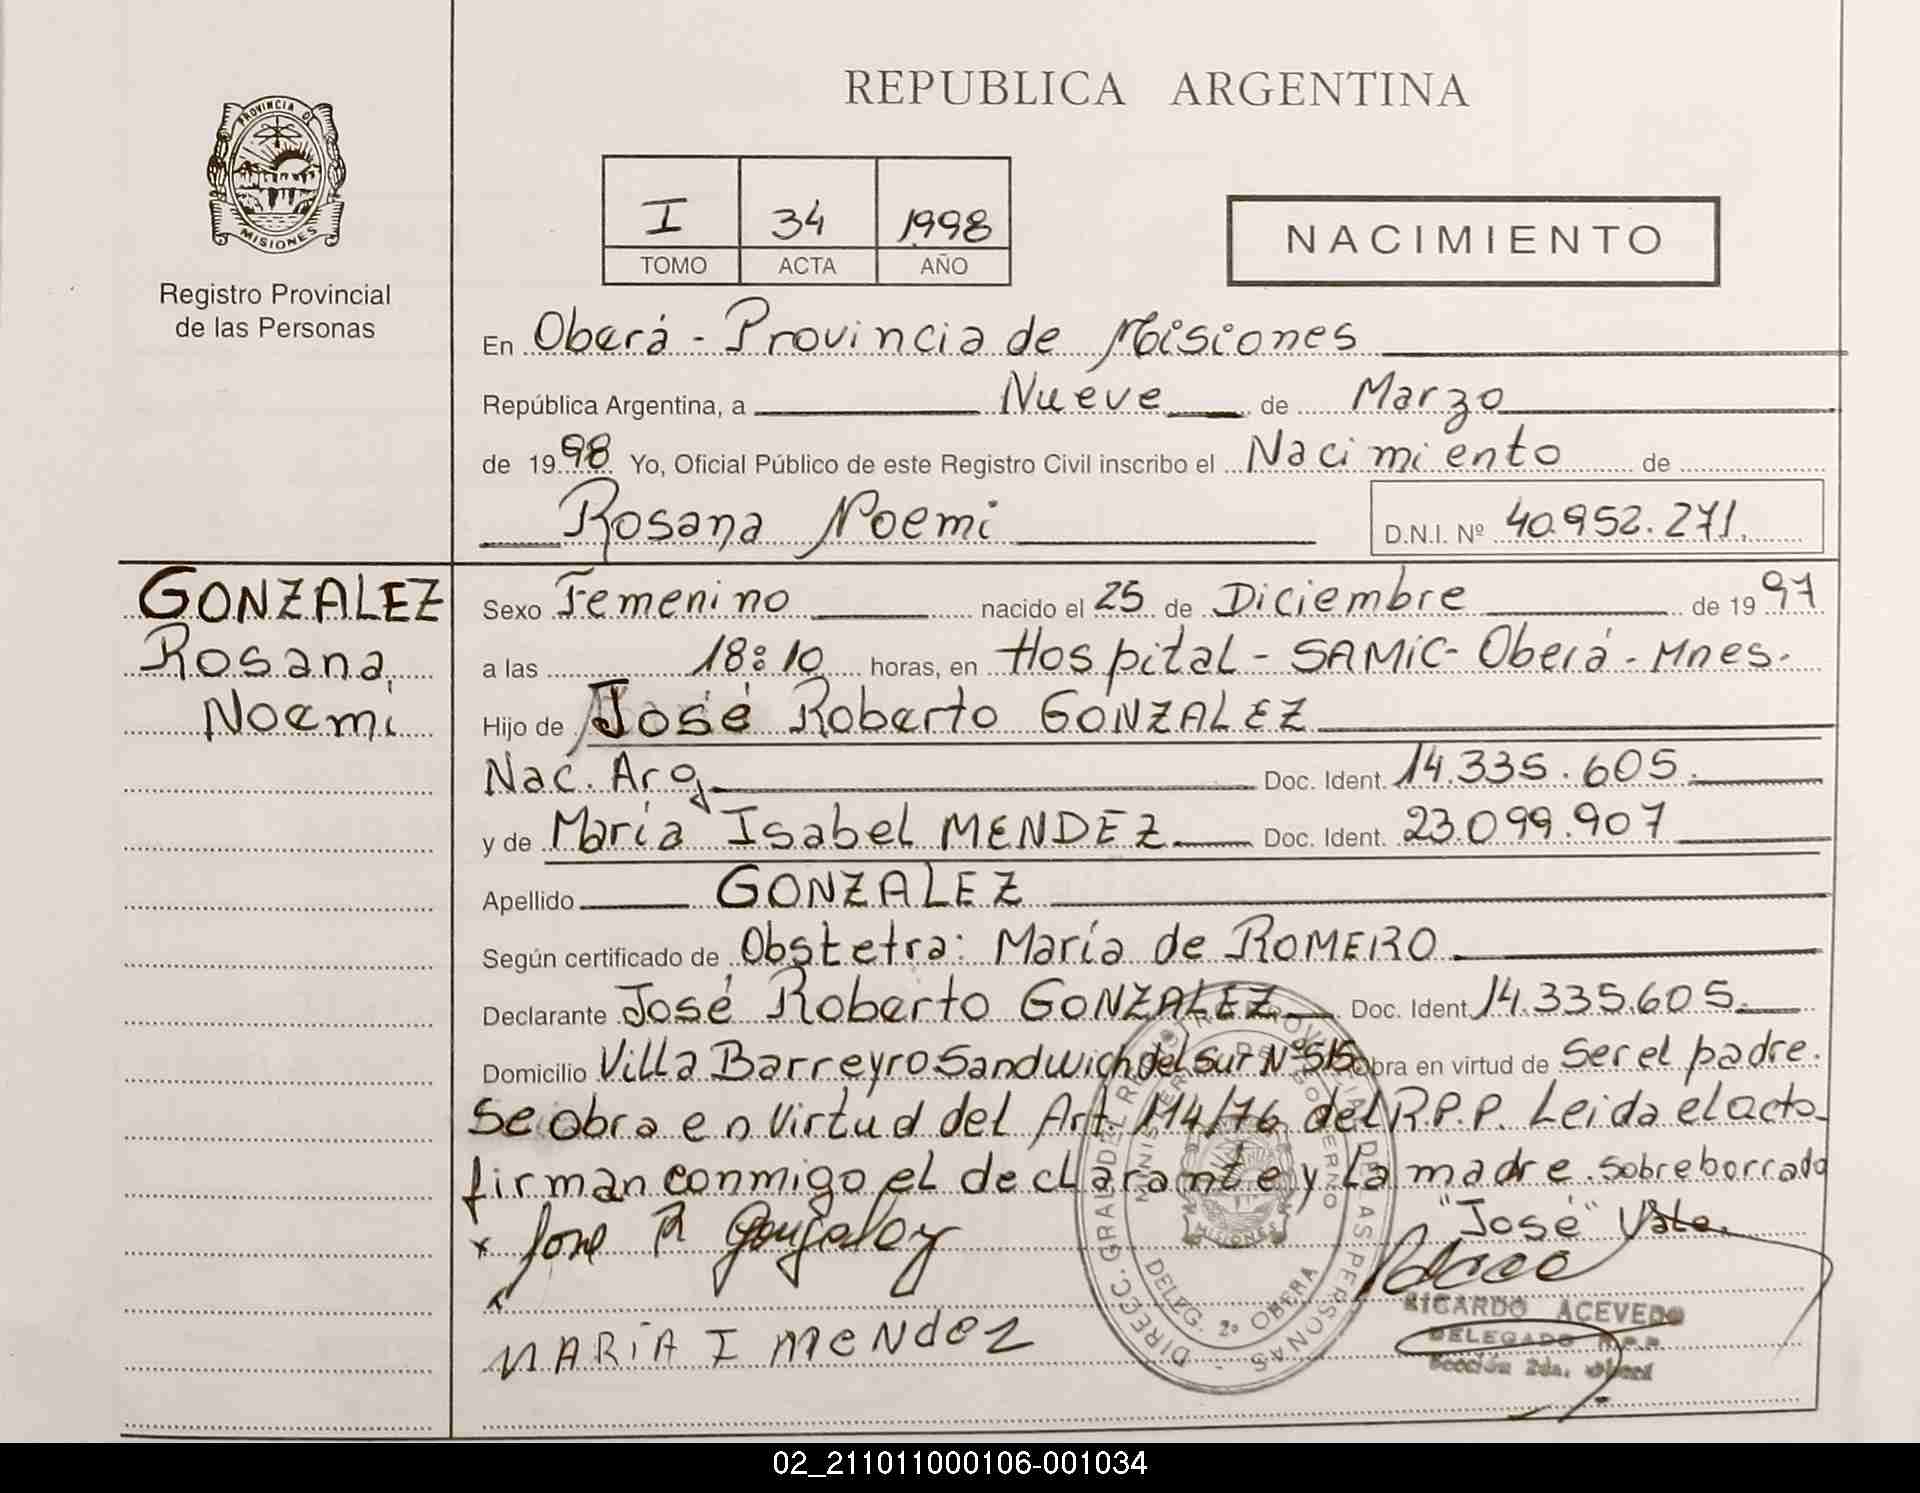 REPUBLICA ARGENTINA
PROVINCIA DE
MISIONES
Registro Provincial
de las Personas
I 34 1998
TOMO ACTA AÑO
NACIMIENTO
En Oberá - Provincia de Misiones
República Argentina, a Nueve de Marzo
de 1998 Yo, Oficial Público de este Registro Civil inscribo el Nacimiento de
Rosana Noemi D.N.I. Nº 40.952.271.
GONZALEZ
Rosana,
Noemi
Sexo Femenino nacido el 25 de Diciembre de 1997
a las 18:10 horas, en Hospital - SAMIC - Oberá - Mnes.
Hijo de José Roberto GONZALEZ
Nac. Arg Doc. Ident. 14.335.605.
y de María Isabel MENDEZ Doc. Ident. 23.099.907
Apellido GONZALEZ
Según certificado de Obstetra: María de ROMERO
Declarante José Roberto GONZALEZ Doc. Ident. 14.335.605.
Domicilio Villa Barreyro Sandwich del Sur Nº 515 Obra en virtud de Ser el padre.
Se obra en Virtud del Art. 114/76 del R.P.P. Leida el acta
firman conmigo el declarante y La madre. Sobreborrado
"José" Vale.
x Jose R Gonzalez
MARIA I MENdEZ
DIRECC. GRAL. DEL REGISTRO PROVINCIAL DE LAS PERSONAS
MINISTERIO DE GOBIERNO
MISIONES
DELEG. 2º OBERA
RICARDO ACEVEDO
DELEGADO R.P.P.
Sección 2da. Oberá
02_211011000106-001034